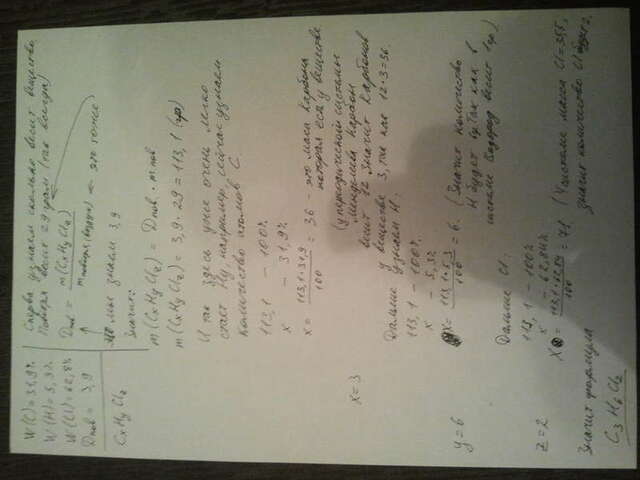 W(C)=31,9%
W(H)=5,3%
W(Cl)=62,8%
Dпов = 3,9
CxHyClz
Сперва узнаем сколько весит вещество.
Повітря весит 29 грам (так всегда)
Dпов = m(CxHyClz) / m повітря (воздух) ← это тоже
мы знаем 3,9
Значит:
m(CxHyClz) = Dпов · m пов
m(CxHyClz) = 3,9 · 29 = 113,1 (гр)
И так здесь уже очень легко
стает Ну, например, сейчас узнаем
количество атомов C
113,1 – 100%
x – 31,9%
x = 113,1·31,9 / 100 = 36 – это маса Карбона
которая есть у веществе
(у периодической системы
Менделева Карбон
весит 12 Значит Карбонов
у веществе 3, так как 12·3=36.
x = 3
Дальше узнаем H:
113,1 – 100%
x – 5,3%
x = 113,1·5,3 / 100 = 6. (Значит количество
H будет 6, Так как в
системе Водород весит 1 гр)
y = 6
Дальше Cl:
113,1 – 100%
x – 62,84%
X = 113,1·62,84 / 100 = 71. (У системе масса Cl = 35,5,
значит количество Cl будет 2.
z = 2
Значит формула
C3H6Cl2